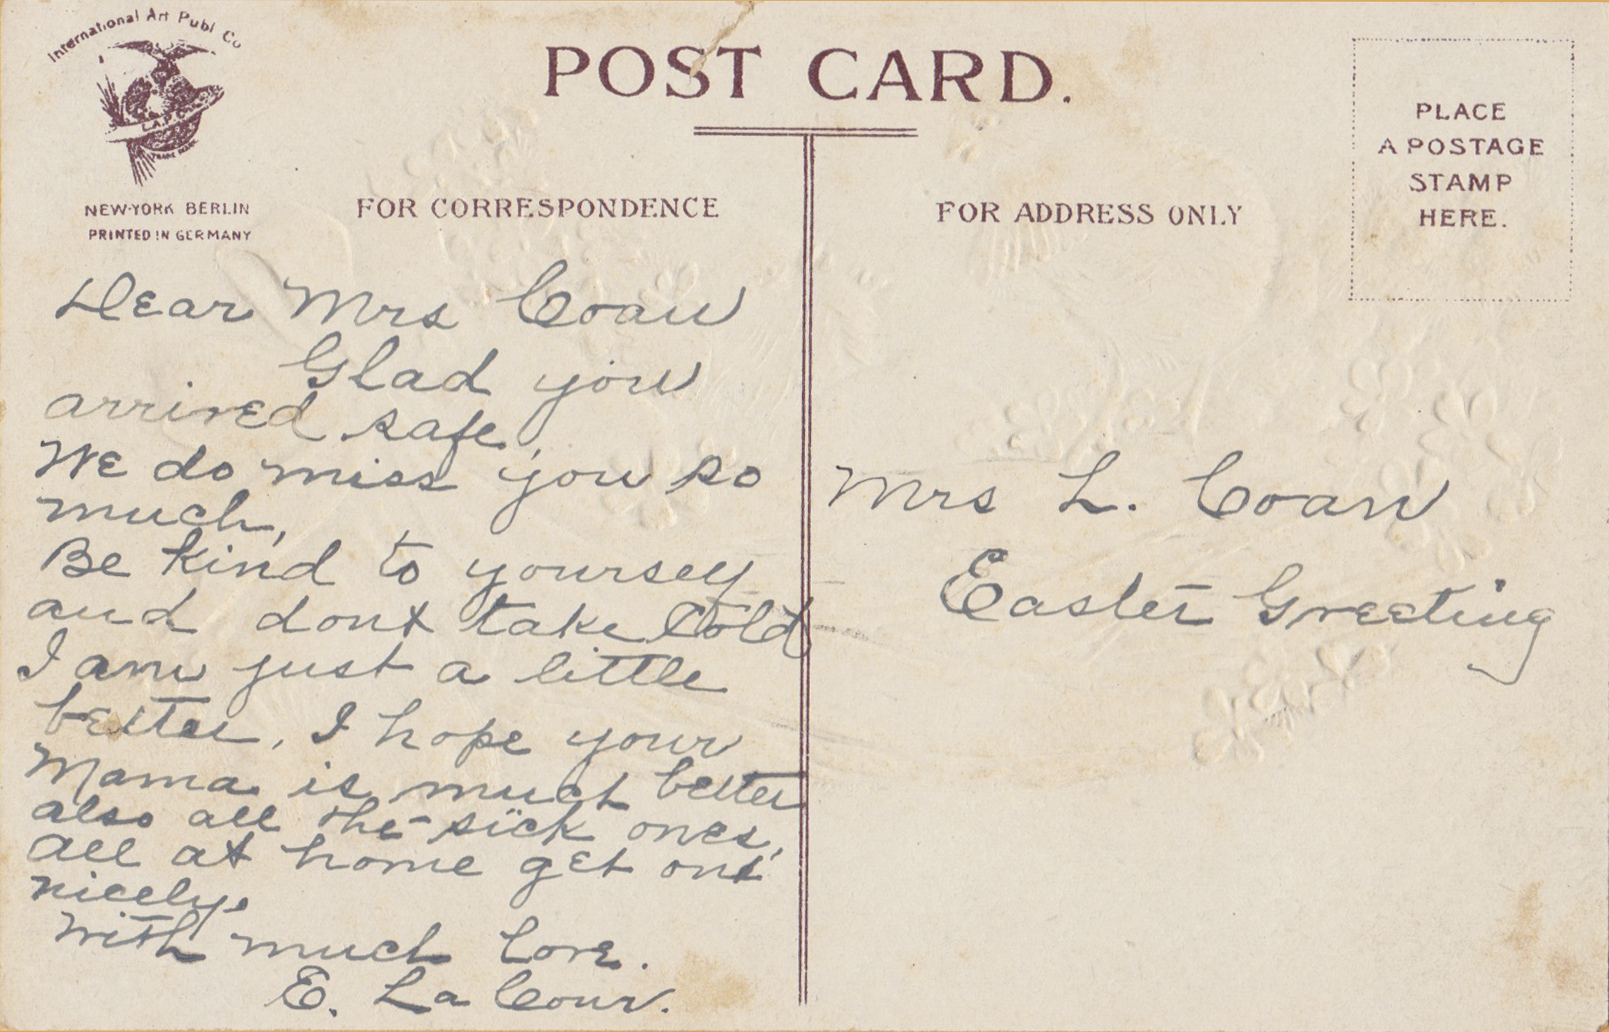 International Art Publ Co
I.A.P.C.
TRADE MARK
NEW-YORK BERLIN
PRINTED IN GERMANY
POST CARD.
FOR CORRESPONDENCE
Dear Mrs Coan
Glad you
arrived safe,
We do miss you so
much,
Be kind to yourself
and dont take Cold
I am just a little
better, I hope your
Mama is much better
also all the sick ones,
all at home get ont
nicely.
with much love.
E. La Cour.
FOR ADDRESS ONLY
PLACE
A POSTAGE
STAMP
HERE.
Mrs L. Coan
Easter Greeting